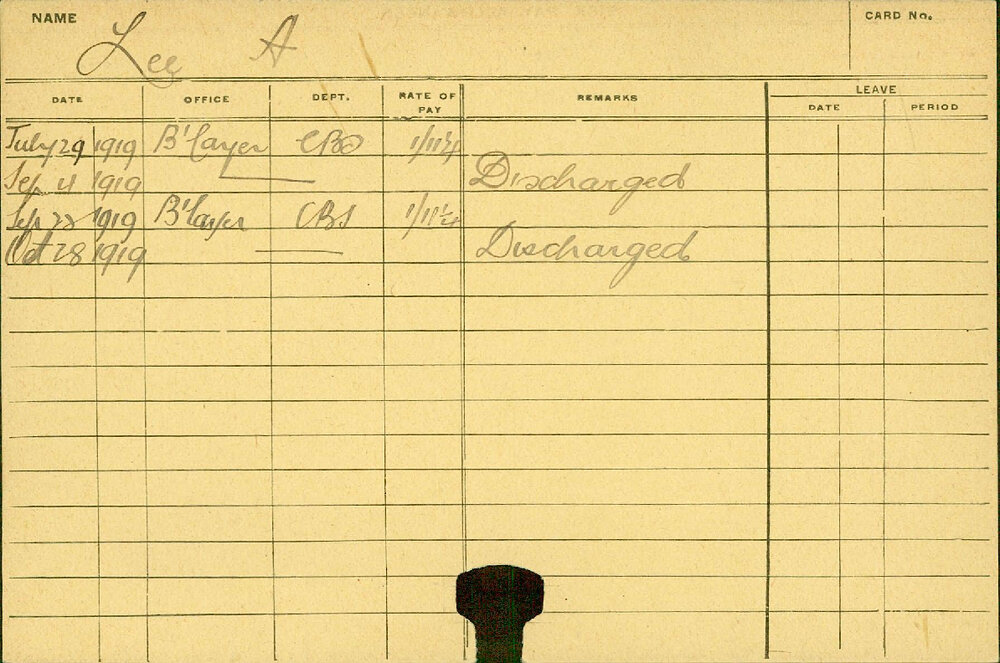 NAME Lee A CARD No.
LEAVE
DATE OFFICE DEPT. RATE OF PAY REMARKS DATE PERIOD
July 29 1919 B'layer CBO 1/11¼
Sep 4 1919 Discharged
Sep 22 1919 B'layer CBS 1/11¼
Oct 28 1919 Discharged